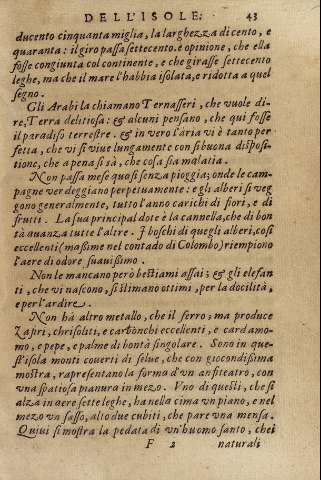 DELL'ISOLE. 43
ducento cinquanta miglia, la larghezza di cento, e
quaranta: il giro passa settecento. e opinione, che ella
fosse congiunta col continente, e che girasse settecento
leghe, ma che il mare l'habbia isolata, e ridotta a quel
segno.
Gli Arabi la chiamano Ternasseri, che vuole di-
re, Terra delitiosa: & alcuni pensano, che qui fosse
il paradiso terrestre. & in vero l'aria vi è tanto per
fetta, che vi si viue lungamente con sì buona disposi-
tione, che a pena si sà, che cosa sia malatia.
Non passa mese quasi senza pioggia; onde le cam-
pagne verdeggiano perpetuamente: e gli alberi si veg
gono generalmente, tutto l'anno carichi di fiori, e di
frutti. La sua principal dote è la cannella, che di bon
tà auanza tutte l'altre. I boschi di quegli alberi, così
eccellenti (massime nel contado di Colombo) riempiono
l'aere di odore suauissimo.
Non le mancano però bestiami assai; & gli elefan
ti, che vi nascono, si stimano ottimi, per la docilità,
e per l'ardire.
Non hà altro metallo, che il ferro; ma produce
Zafiri, chrisoliti, e carbonchi eccellenti, e cardamo-
mo, e pepe, e palme di bontà singolare. Sono in que
st'isola monti couerti di selue, che con giocondissima
mostra, rapresentano la forma d'un anfiteatro, con
vna spatiosa pianura in mezo. Vno di questi, che si
alza in aere sette leghe, ha nella cima vn piano, e nel
mezo vn sasso, alto due cubiti, che pare vna mensa.
Quiui si mostra la pedata di vn'huomo santo, chei
F 2 naturali